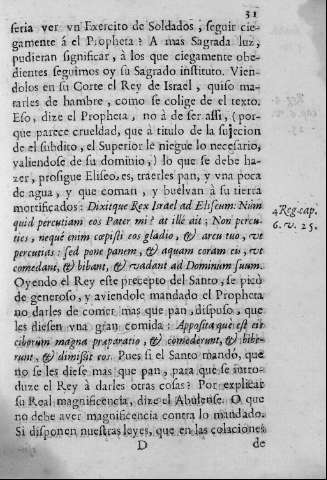 31
seria ver vn Exercito de Soldados, seguir cie-
gamente á el Propheta? A mas Sagrada luz,
pudieran significar, à los que ciegamente obe-
dientes seguimos oy su Sagrado instituto. Vien-
dolos en su Corte el Rey de Israel, quiso ma-
tarles de hambre, como se colige de el texto.
Eso, dize el Propheta, no à de ser assi, (por-
que parece crueldad, que à titulo de la sujecion
de el subdito, el Superior le niegue lo necesario,
valiendose de su dominio,) lo que se debe ha-
zer, prosigue Eliseo, es, traerles pan, y vna poca
de agua, y que coman, y buelvan à su tierra
mortificados: Dixitque Rex Israel ad Eliseum: Num
quid percutiam eos Pater mi? at ille ait; Non percu-
ties, neque enim cœpisti eos gladio, & arcu tuo, ut
percutias: sed pone panem, & aquam coram eis, ut
comedant, & bibant, & vadant ad Dominum suum.
4 Reg. cap.
6. v. 25.
Oyendo el Rey este precepto del Santo, se picò
de generoso, y aviendole mandado el Propheta
no darles de comer mas que pan, dispuso, que
les diesen vna gran comida: Apposita què est eis
ciborum magna præparatio, & comederunt, & bibe-
runt, & dimissit eos. Pues si el Santo mandó, que
no se les diese mas que pan, para què se intro-
duze el Rey à darles otras cosas? Por explicar
su Real magnificencia, dize el Abulense. O que
no debe aver magnificencia contra lo mandado.
Si disponen nuestras leyes, que en las colaciones
D de